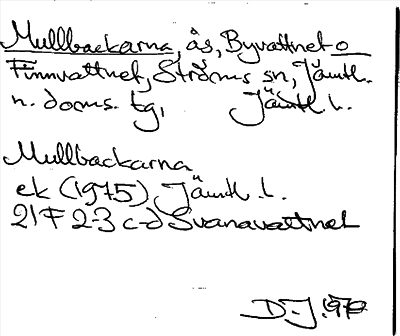 Mullbackarna, ås, Byvattnet o
Finnvattnet, Ströms sn, Jämtl.
n. doms. tg, Jämtl. l.
Mullbackarna
ek (1975) Jämtl. l.
21F 2-3 c-d Svanavattnet
D-J 1979